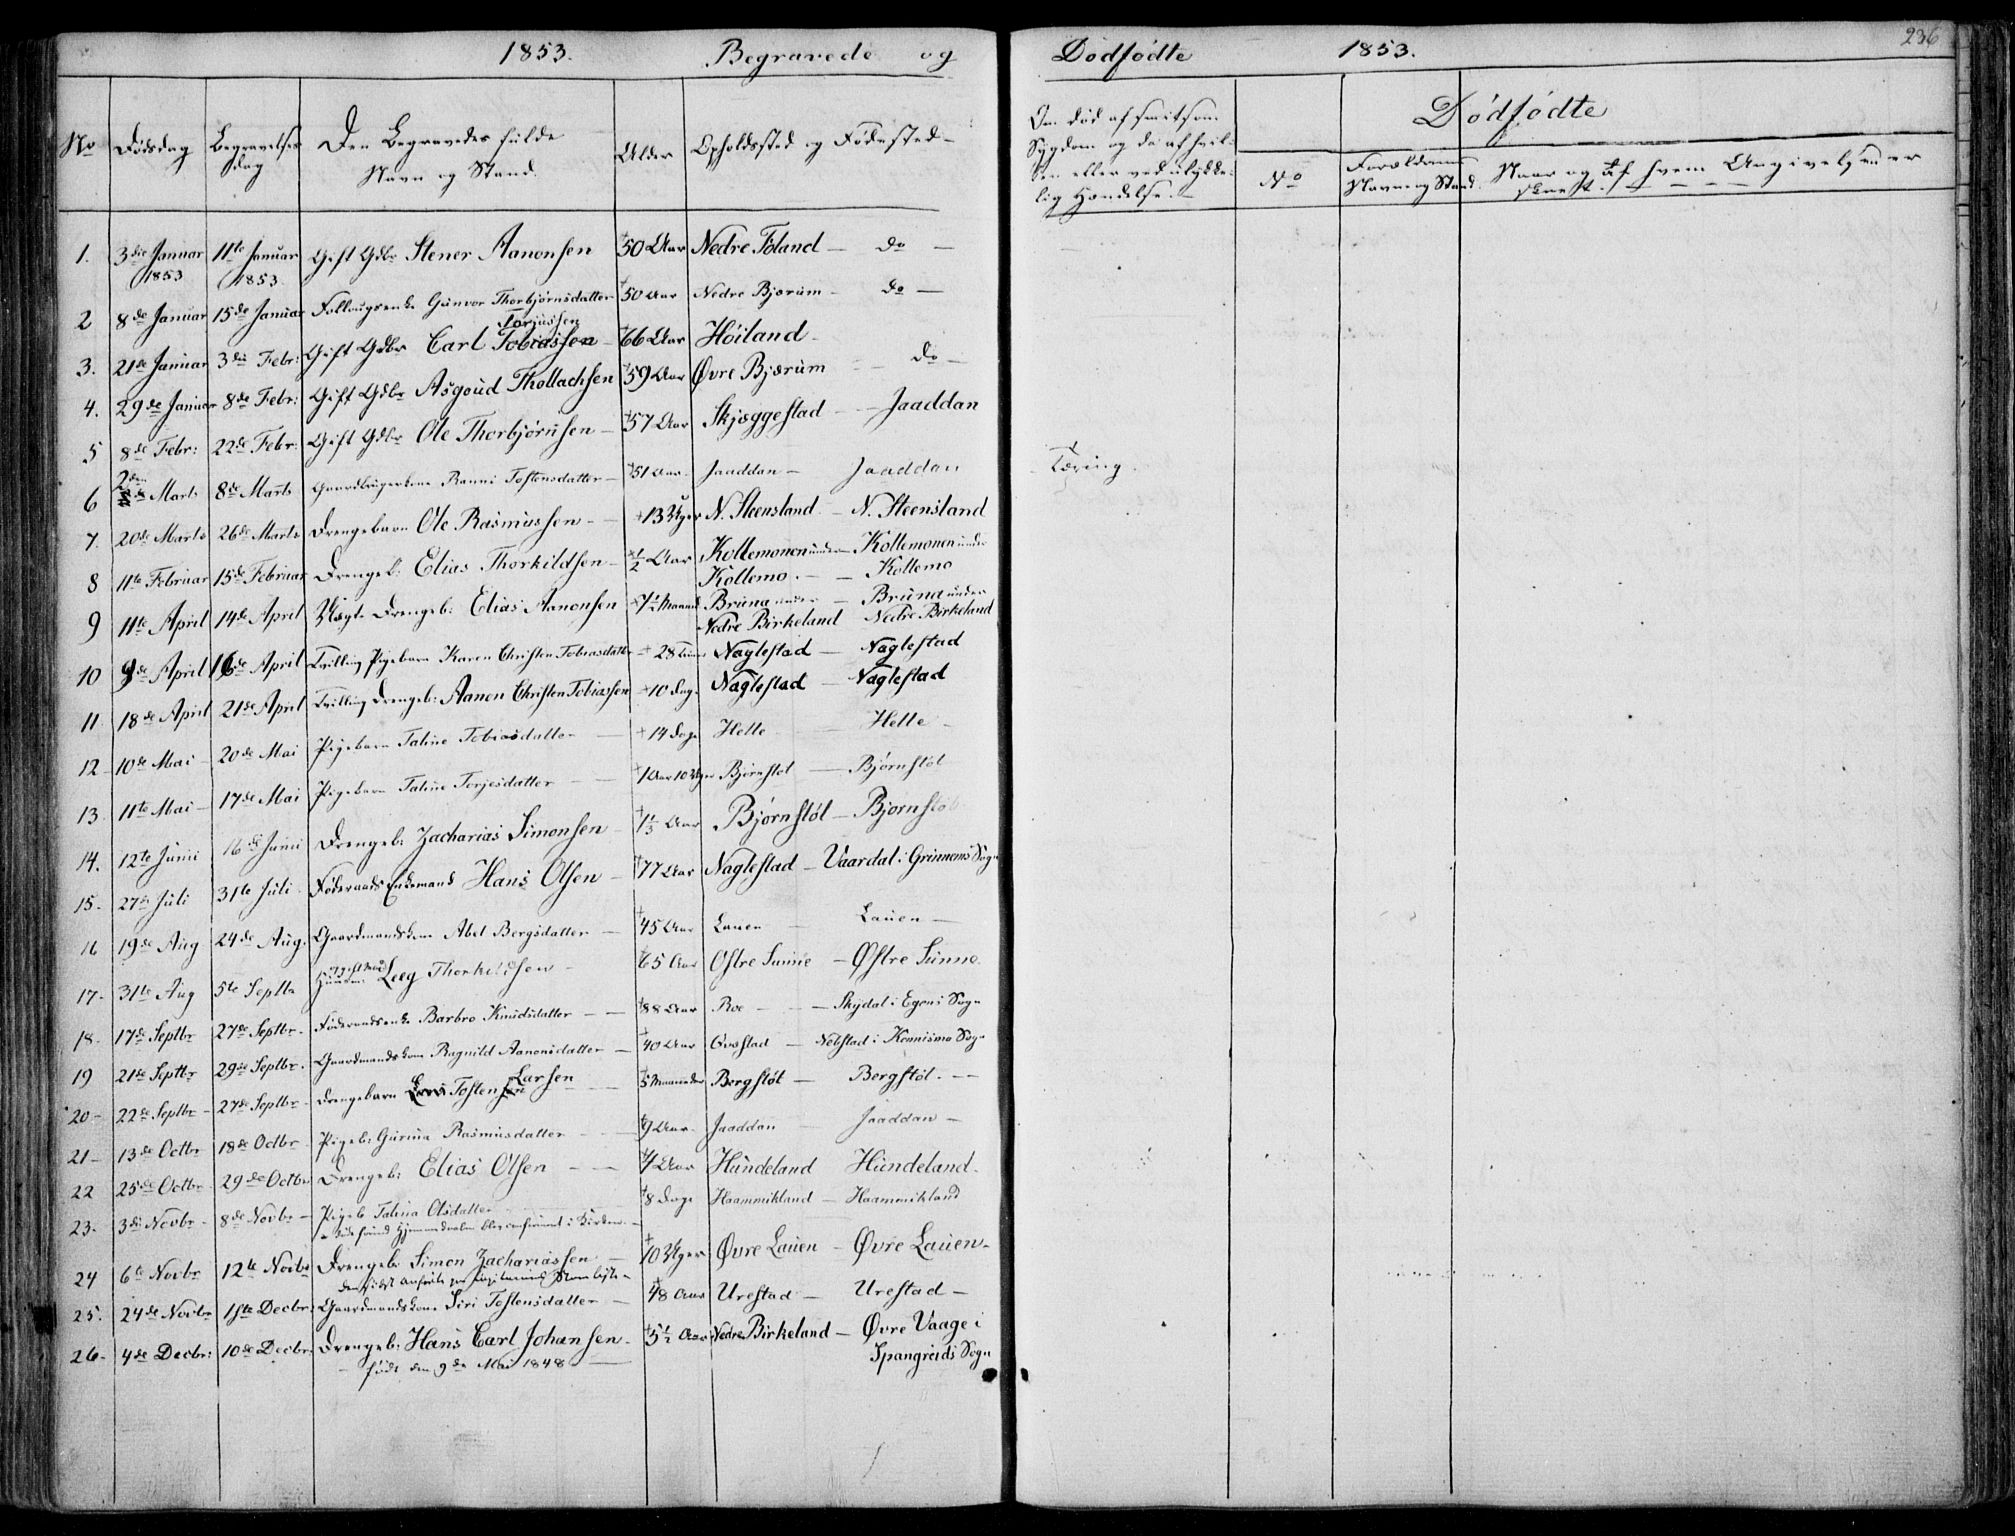 1853. Begravede og Dødfødte 1853. 236
No Dødsdag Begravelsesdag Den Begravedes fulde Navn og Stand. Alder Opholdssted og Fødested
Om død af smitsom
Sygdom og da af hvil-
ken eller ved ulykke-
lig Hændelse.
Dødfødte
No Forældrenes Navn og Stand. Naar og af hvem Angivelsen er skeet.
1. 3die Januar 1853 11te Januar 1853 Gift Gdbr Stener Aanonsen 50 Aar Nedre Föland — do —
2 8de Januar 15de Januar Gunvor Thorbjørnsdatter 50 Aar Nedre Bjærum — do —
3. 21de Januar 3die Febr: Gift Gdbr Carl Tobiassen Torjussen 66 Aar Höiland
4. 29de Januar 8de Febr: Gift Gdbr Asgoud Thollachsen 59 Aar Øvre Bjærum — do —
5 8de Febr: 22de Febr: Gift Gdbr Ole Thorbjørnsen 57 Aar Skjæggestad — Jaaddan
6 2den Marts 8de Marts Gaardbrugerkone Ranni Tostensdatter 51 Aar Jaaddan — Jaaddan Tæring.
7. 20de Marts 26de Marts Drengebarn Ole Rasmussen 13 Uger N. Steensland — N. Steensland
8 11te Februar 15de Februar Drengeb: Elias Thorkildsen ½ Aar Kollemonen under Kollemo. — Kollemonen under Kollemo
9 11te April 14de April Drengeb: Elias Aanonsen 7½ Maaned Bruna under Nedre Birkeland — Bruna under Nedre Birkeland
10 9de April 16de April Tvilling Pigebarn Karen Christen Tobiasdatter 28 Timer Naglestad — Naglestad
11 18de April 21de April Tvilling Drengeb: Aanon Christen Tobiassen 10 Dage Naglestad — Naglestad
12 10de Mai 20de Mai Pigebarn Taline Tobiasdatter 14 Dage Helle — Helle
13. 11te Mai 17de Mai Pigebarn Taline Torjesdatter 1 Aar 10 Uger Bjørnstøl — Bjørnstøl
14. 12te Juni 16de Juni Drengeb: Zacharias Simonsen 1⅓ Aar Bjørnstøl — Bjørnstøl
15. 27de Juli 31te Juli Föderaads Enkemand Hans Olsen 77 Aar Naglestad — Vaardal i Grinnems Sogn
16 19de Aug 24de Aug. Gaardmandskone Abel Bergsdatter 45 Aar Lauen — Lauen
17. 31te Aug 5te Septbr Leeg Thorkildsen 65 Aar Østre Sunne — Østre Sunne
18. 17de Septbr 27de Septbr. Föderaadsenke Barbro Knudsdatter 88 Aar Roe — Skydal i Egens Sogn
19 21de Septbr 29de Septbr. Gaardmandskone Ragnild Aanonsdatter 40 Aar Qvastad — Nebstad i Konnismo Sogn
20 22de Septbr 27de Septbr Drengebarn Tosten Larsen 5 Maaneder Bergstøl — Bergstøl.
21 13de Octbr 18de Octbr Pigeb: Gurina Rasmusdatter 9 Aar Jaaddan — Jaaddan
22 25de Octbr 29de Octbr Drengeb: Elias Olsen Aar Hundeland Hundeland
23. 3die Novbr 8de Novbr Pigeb Talina Olsdatter 8 Dage Haammikland — Haammikland
Hjemmedaaben blev confirmeret i Kirken
24 6te Novbr 12te Novbr Drengeb: Simon Zachariassen 10 Uger Øvre Lauen — Øvre Lauen
25. 24de Novbr 1ste Decbr: Gaardmandskone Siri Tostensdatter 48 Aar Urestad — Urestad
26. 4de Decbr: 10de Decbr: Drengeb: Hans Carl Johansen 5½ Aar Nedre Birkeland — Øvre Vaage i Spangreids Sogn
født den 9de Mai 1848